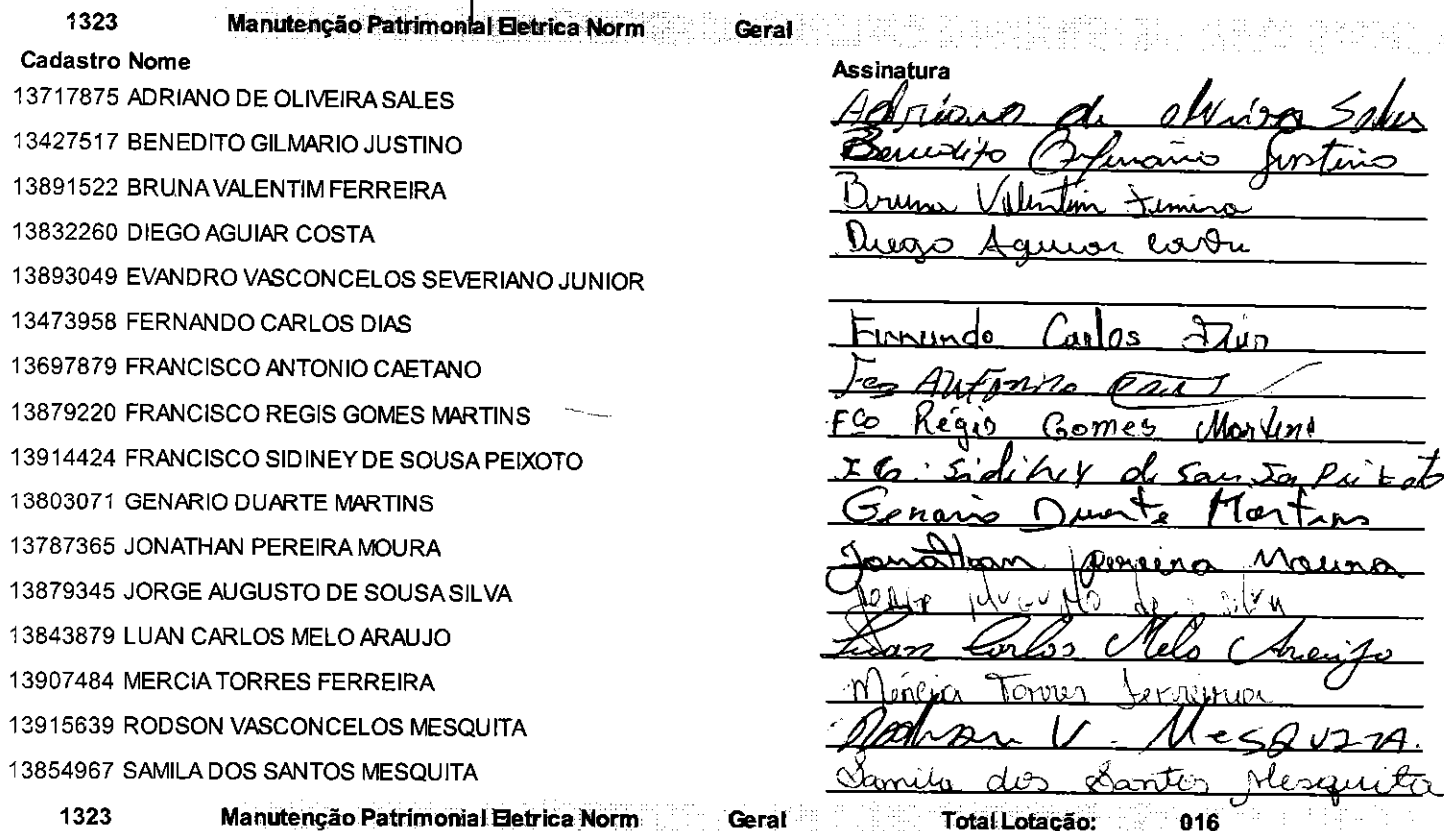 1323 Manutenção Patrimonial Eletrica Norm Geral
Cadastro Nome Assinatura
13717875 ADRIANO DE OLIVEIRA SALES Adriano de oliveira Sales
13427517 BENEDITO GILMARIO JUSTINO Benedito Gilmario Justino
13891522 BRUNA VALENTIM FERREIRA Bruna Valentim Ferreira
13832260 DIEGO AGUIAR COSTA Diego Aguiar Costa
13893049 EVANDRO VASCONCELOS SEVERIANO JUNIOR
13473958 FERNANDO CARLOS DIAS Fernando Carlos Dias
13697879 FRANCISCO ANTONIO CAETANO Fco Antonio
13879220 FRANCISCO REGIS GOMES MARTINS FCO Régis Gomes Martins
13914424 FRANCISCO SIDINEY DE SOUSA PEIXOTO Sidiney de Sousa Peixoto
13803071 GENARIO DUARTE MARTINS Genario Duarte Martins
13787365 JONATHAN PEREIRA MOURA Jonathan pereira Moura
13879345 JORGE AUGUSTO DE SOUSA SILVA Jorge Augusto de S. Silva
13843879 LUAN CARLOS MELO ARAUJO Luan Carlos Melo Araujo
13907484 MERCIA TORRES FERREIRA Mércia Torres Ferreira
13915639 RODSON VASCONCELOS MESQUITA Rodson V. MESQUITA.
13854967 SAMILA DOS SANTOS MESQUITA Samila dos Santos Mesquita
1323 Manutenção Patrimonial Eletrica Norm Geral Total Lotação: 016